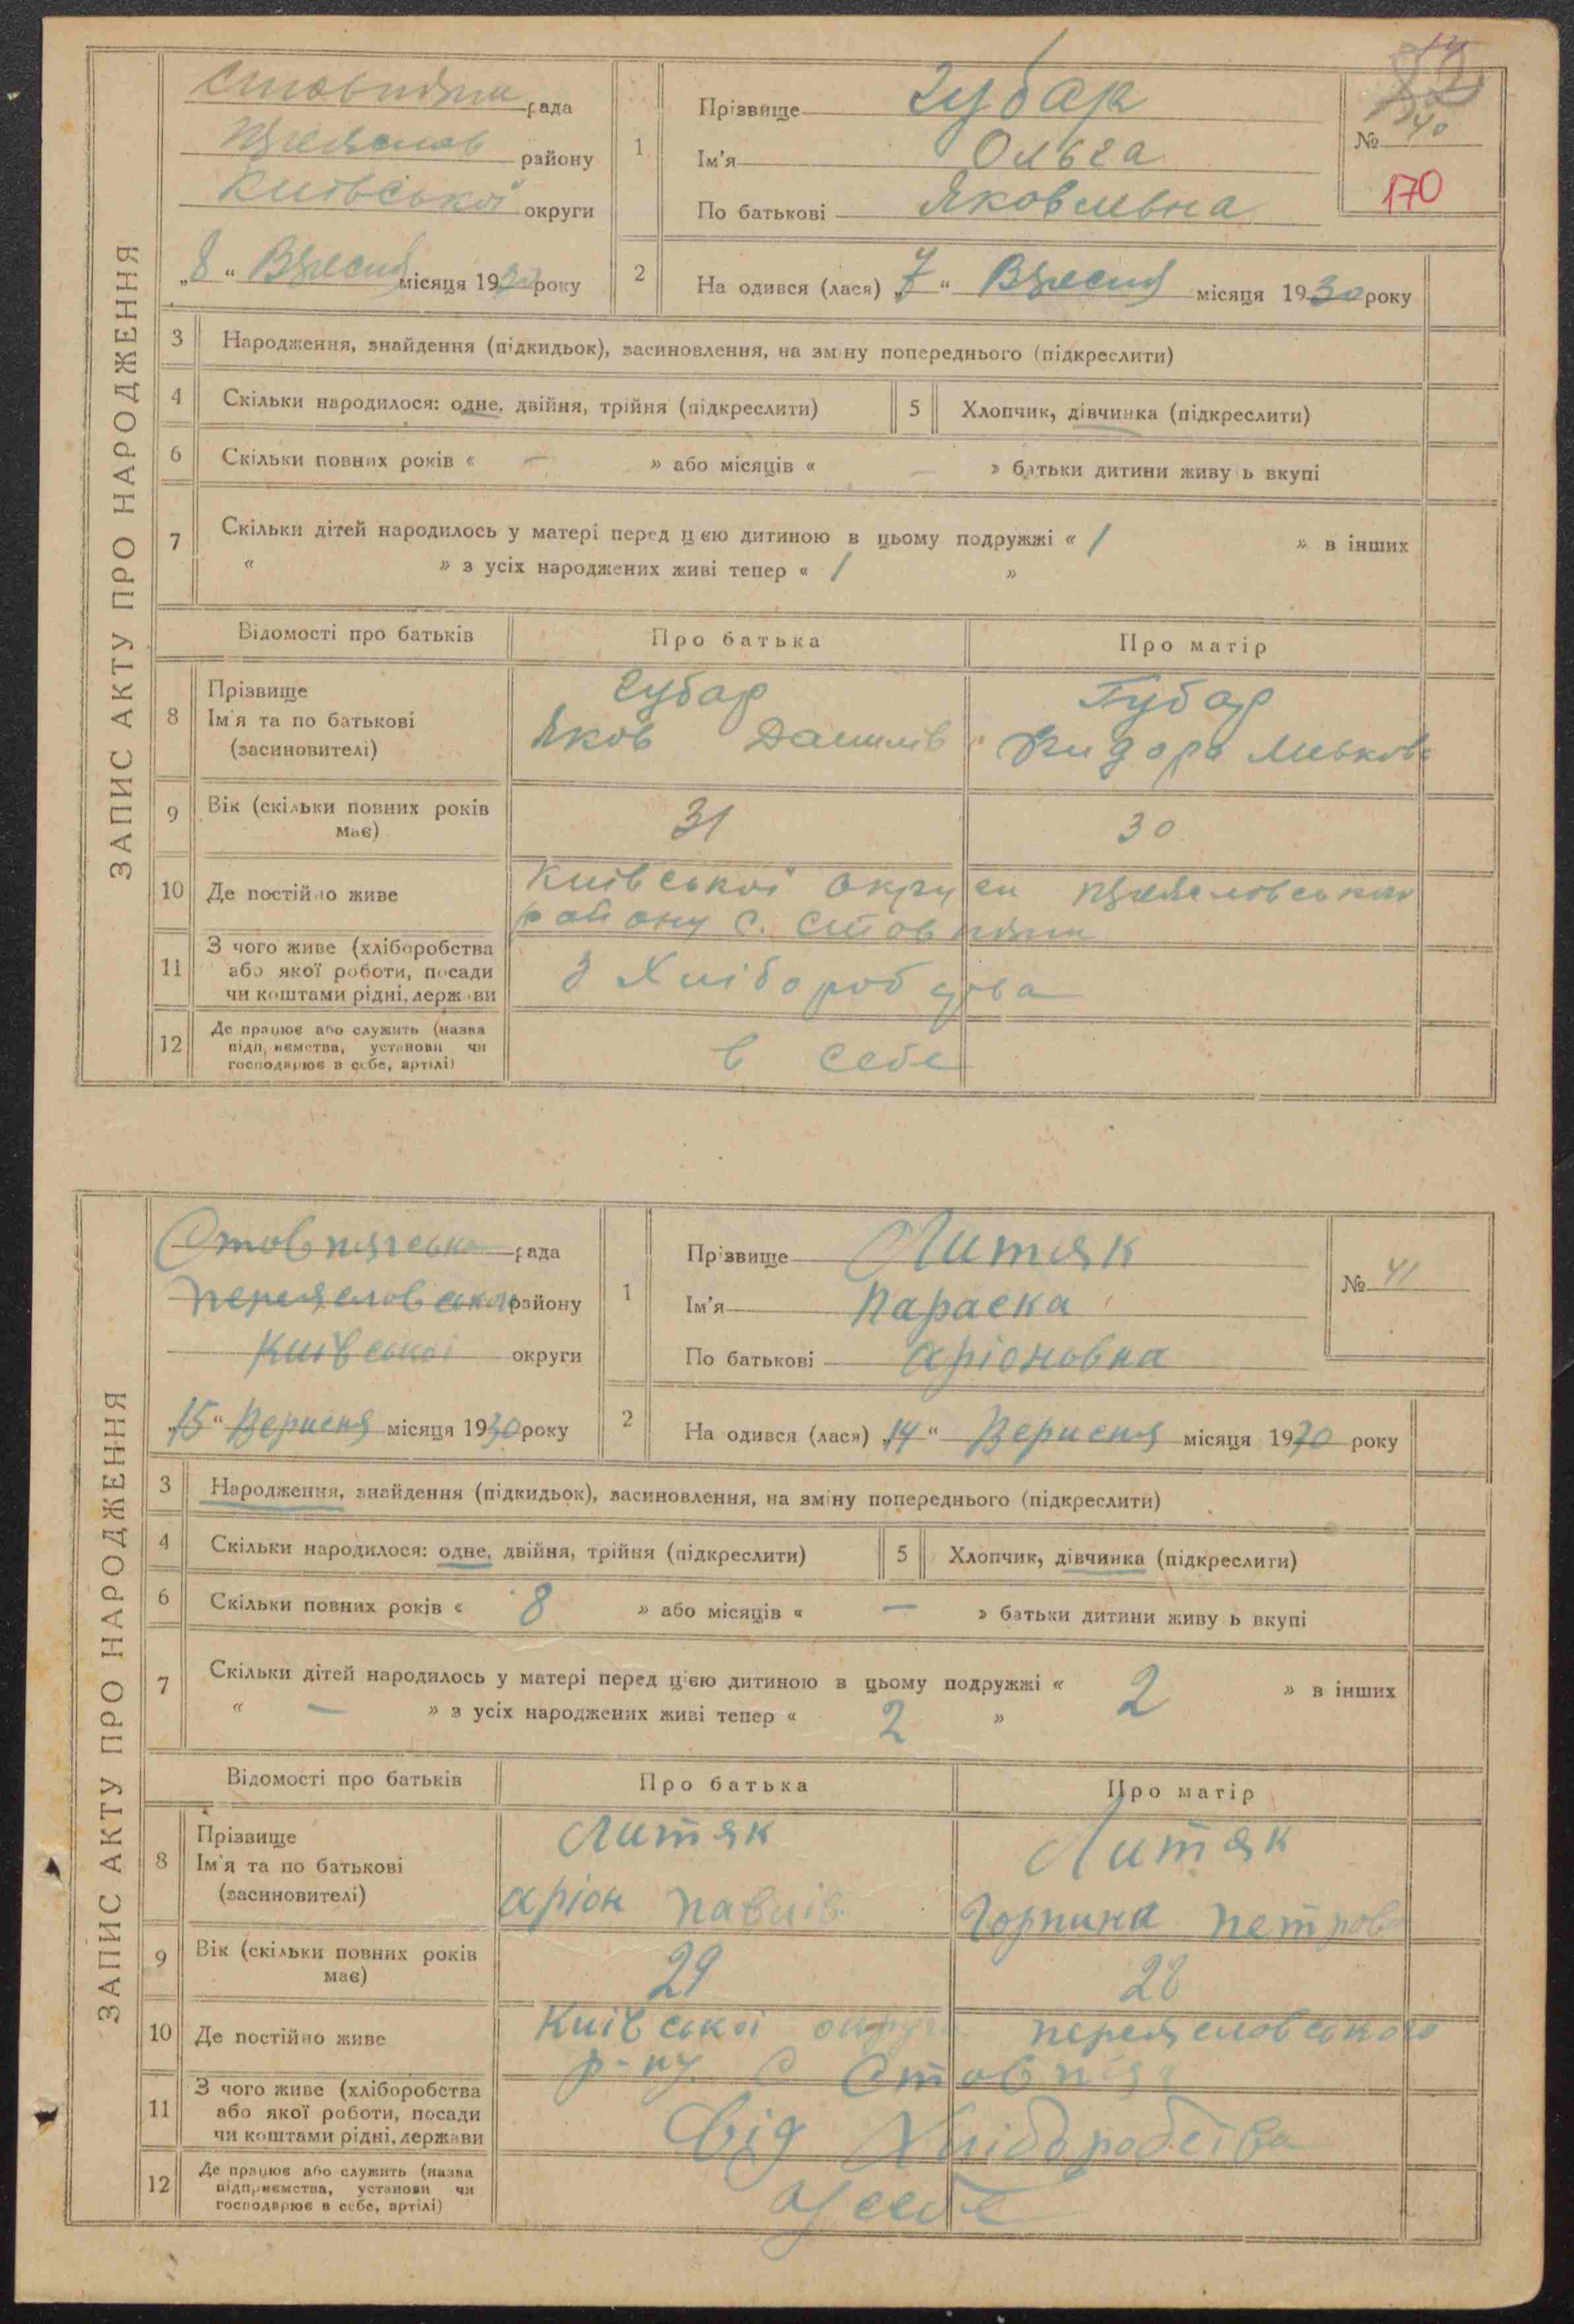 ЗАПИС АКТУ ПРО НАРОДЖЕННЯ
Стовпяги рада
району
Київської округи
„8“ Вересня місяця 1930 року
1
Прізвище Губар
Ім'я Ольга
По батькові Яковлевна
№ 40
170
2
На одився (лася) „7“ Вересня місяця 1930 року
3 Народження, знайдення (підкидьок), засиновлення, на зміну попереднього (підкреслити)
4 Скільки народилося: одне, двійня, трійня (підкреслити) 5 Хлопчик, дівчинка (підкреслити)
6 Скільки повних років « — » або місяців « — » батьки дитини живу ь вкупі
7 Скільки дітей народилось у матері перед цією дитиною в цьому подружжі « 1 » в інших
« » з усіх народжених живі тепер « 1 »
Відомості про батьків Про батька Про матір
8 Прізвище Ім'я та по батькові (засиновителі)
Губар Губар
Яков Данилів
9 Вік (скільки повних років має) 31 30
10 Де постійно живе Київської округи
району с. Стовпяги
11 З чого живе (хліборобства або якої роботи, посади чи коштами рідні, держави
З Хліборобства
12 Де працює або служить (назва підприємства, установи чи господарює в себе, артілі)
в себе
ЗАПИС АКТУ ПРО НАРОДЖЕННЯ
Стовпягська рада
Переяловського району
Київської округи
„15“ Вересня місяця 1930 року
1
Прізвище Литяк
Ім'я Параска
По батькові Аріоновна
№ 41
2
На одився (лася) „14“ Вересня місяця 1930 року
3 Народження, знайдення (підкидьок), засиновлення, на зміну попереднього (підкреслити)
4 Скільки народилося: одне, двійня, трійня (підкреслити) 5 Хлопчик, дівчинка (підкреслити)
6 Скільки повних років « 8 » або місяців « — » батьки дитини живу ь вкупі
7 Скільки дітей народилось у матері перед цією дитиною в цьому подружжі « 2 » в інших
« — » з усіх народжених живі тепер « 2 »
Відомості про батьків Про батька Про матір
8 Прізвище Ім'я та по батькові (засиновителі)
Литяк Литяк
Аріон Павлів Горпина Петров
9 Вік (скільки повних років має) 29 28
10 Де постійно живе Київської округи переясловського
р-ну с Стовпяг
11 З чого живе (хліборобства або якої роботи, посади чи коштами рідні, держави
від Хліборобства
12 Де працює або служить (назва підприємства, установи чи господарює в себе, артілі)
у себе